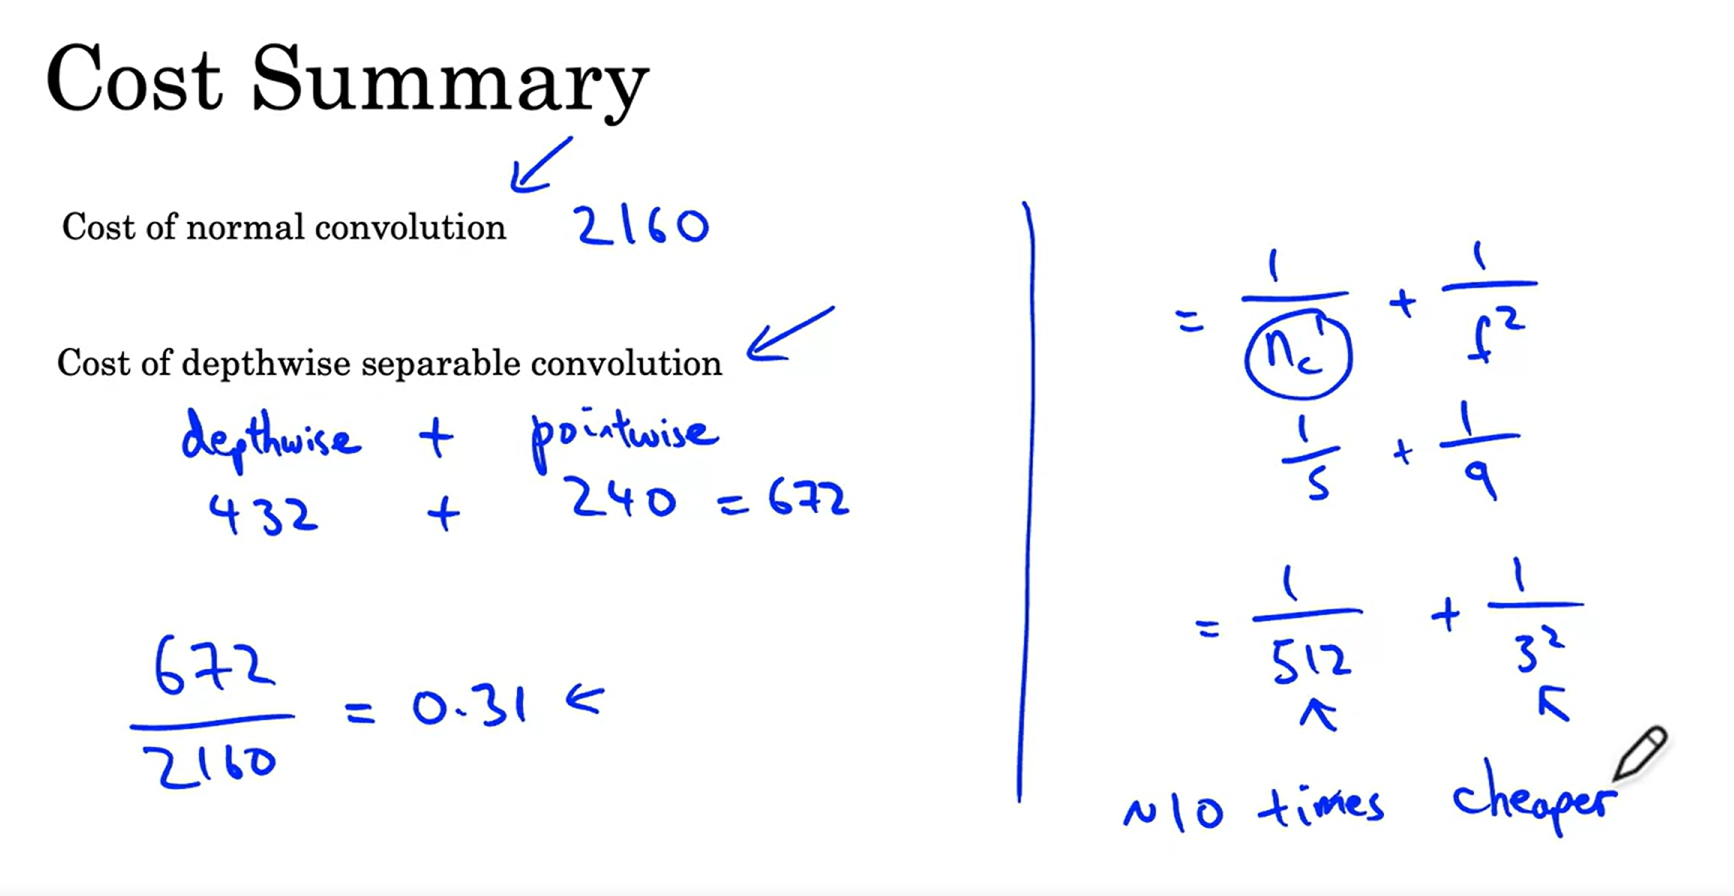 Cost Summary
Cost of normal convolution 2160
Cost of depthwise separable convolution
depthwise + pointwise
432 + 240 = 672
672
2160
= 0.31 ←
= 1/nc' + 1/f²
1/5 + 1/9
= 1/512 + 1/3²
~10 times cheaper